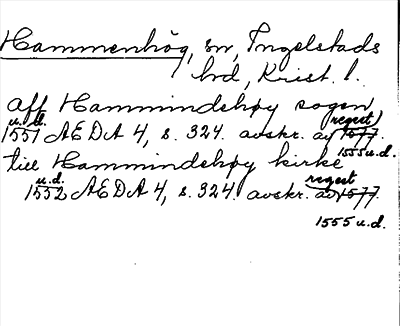 Hammenhög, sn, Ingelstads
hd, Krist. l.
aff Hammindehøy sogen
u.d. regest
1551 AEDA 4, s. 324. avskr. av 1577.
1555 u.d.
till Hammindehøy kirke
u.d. regest
1552 AEDA 4, s. 324. avskr. av 1577.
1555 u.d.